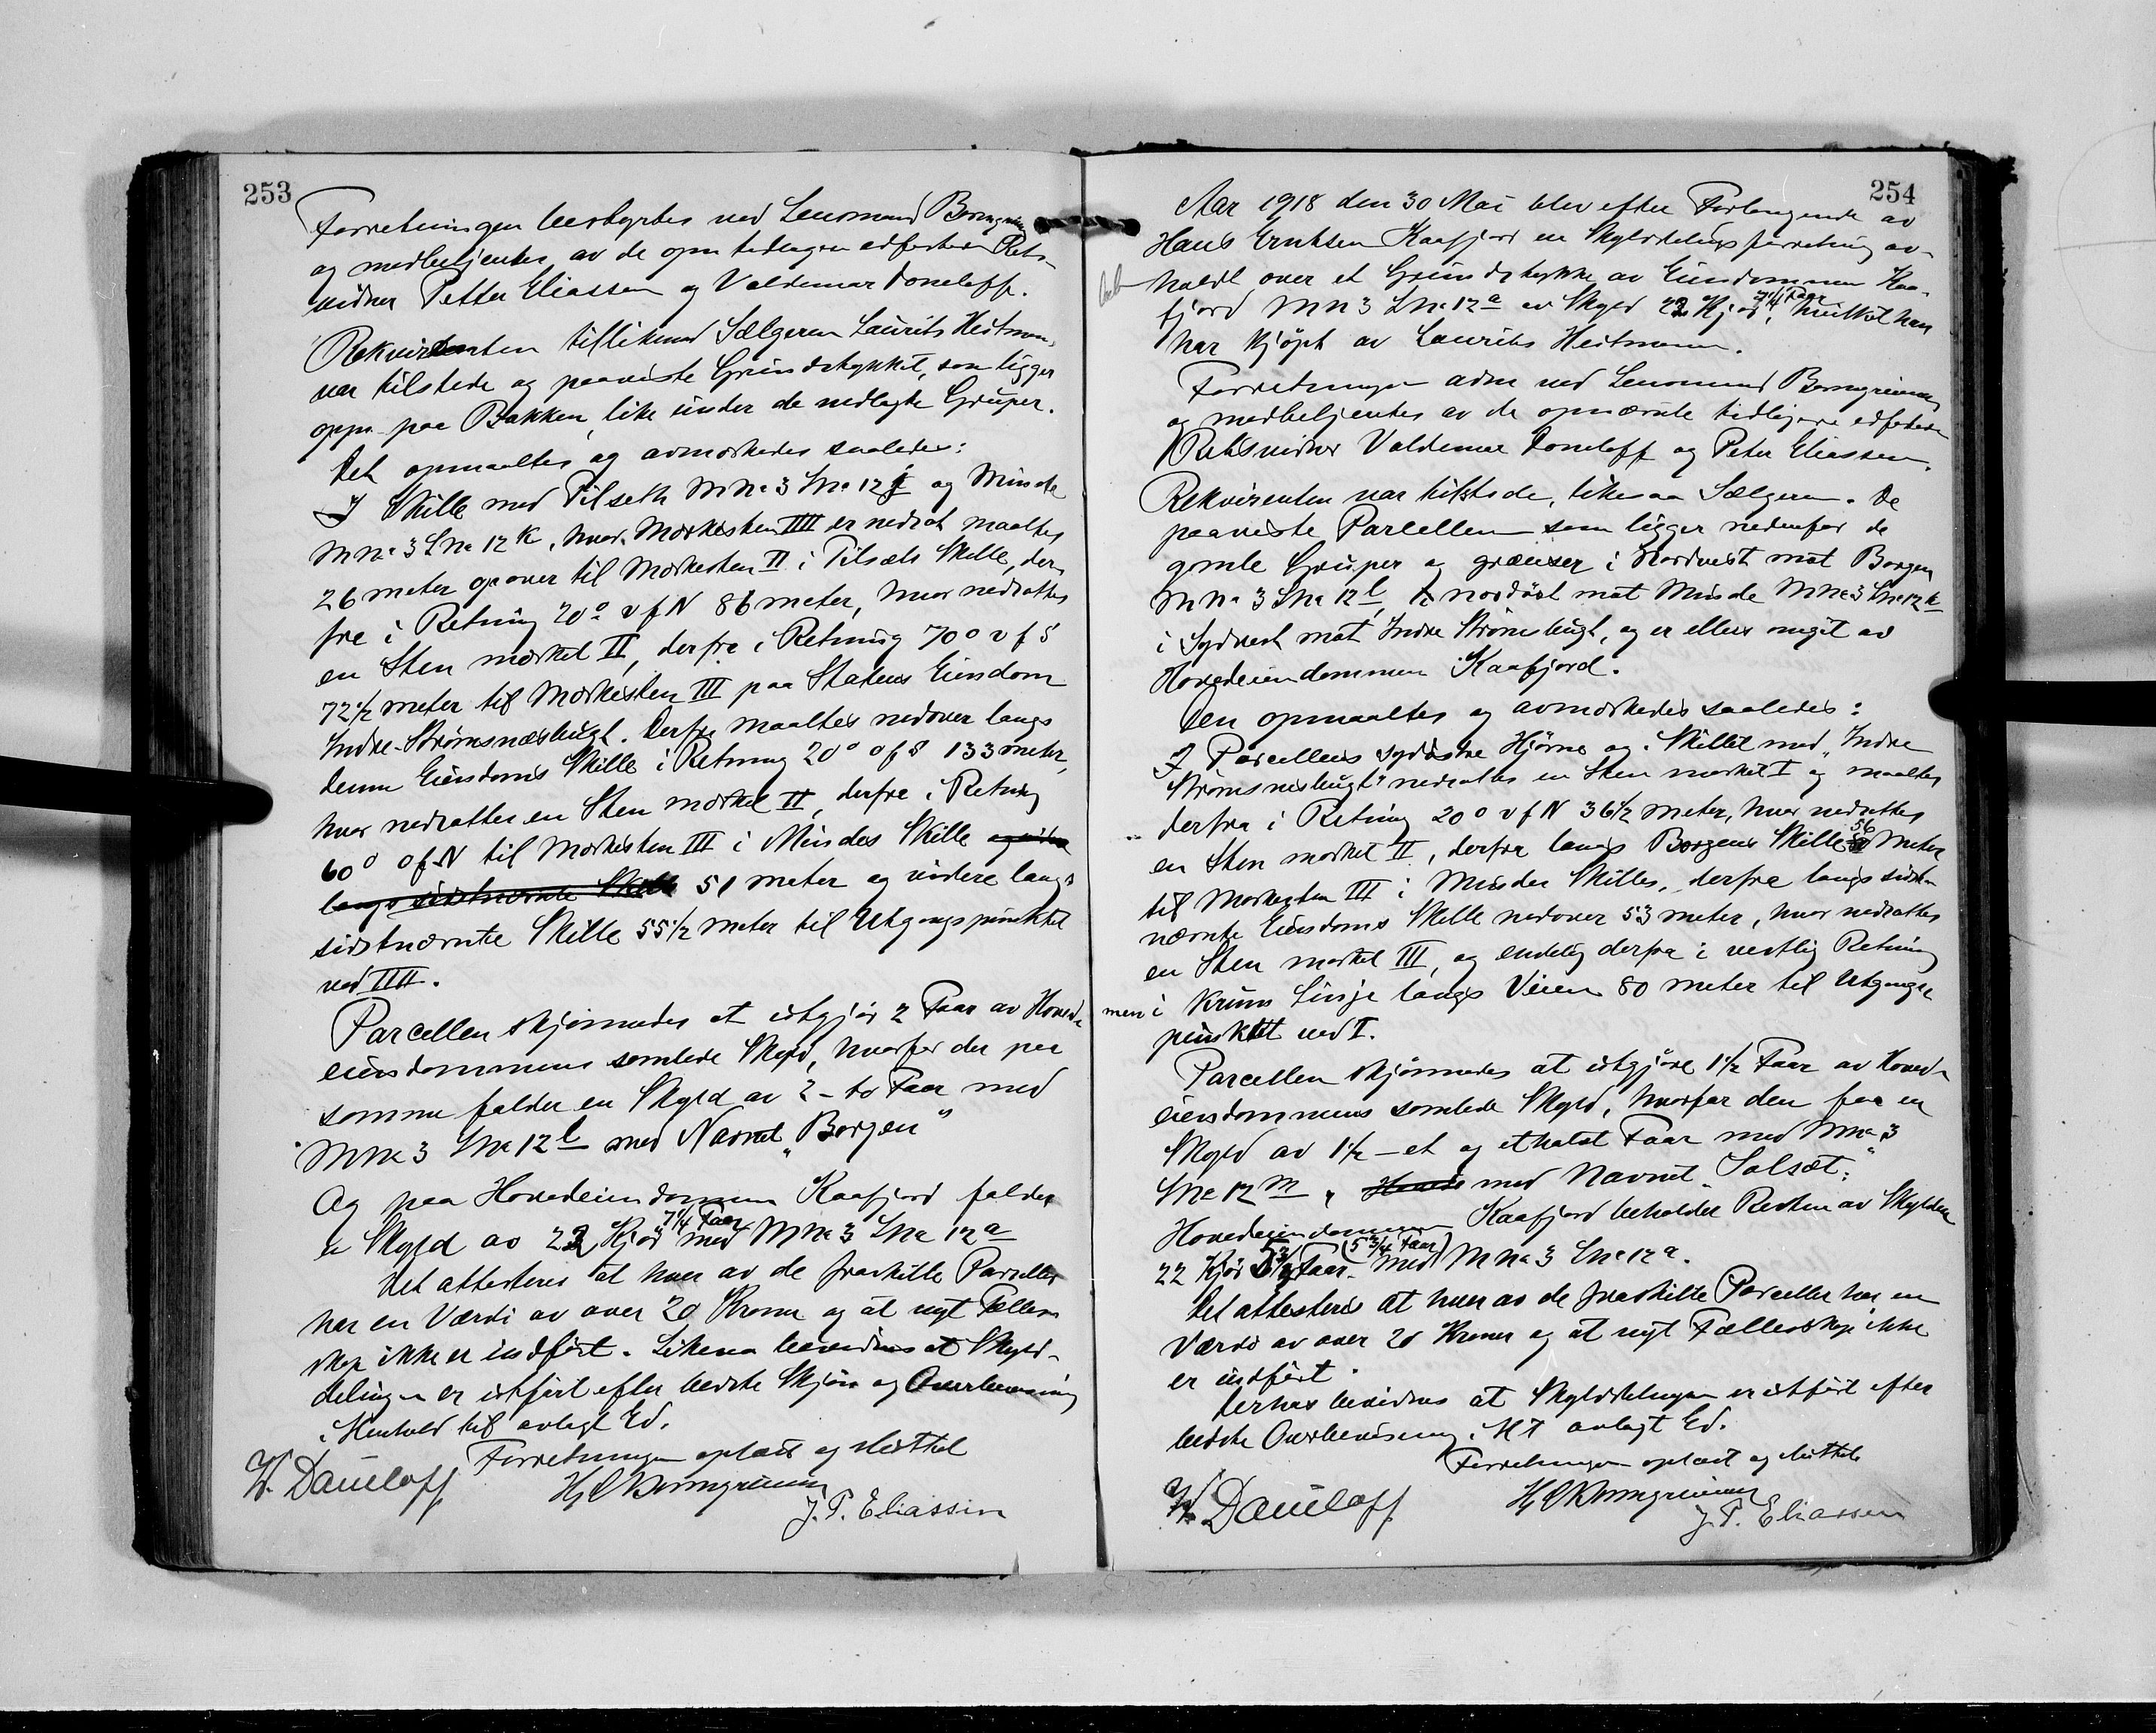 253
Forretningen bestyrtes ved Lensmand Bomgrunn
og medbetjentes av de opn tidligere edfestede Rets-
vidner Petter Eliassen og Valdemar Doneloff.
Rekvirenten tillikemed Sælgeren Laurits Heitmann,
var tilstede og paaviste Grundstykket, som ligger
oppe paa Bakken, like under de nedlagte Gruper.
Det opmaaltes og avmerkedes saaledes:
I Skille med Tilseth Mno 3 Lno 12 j og Minde
Mno 3 Lno 12 k, hvor Merkesten IIII er nedsat maaltes
26 meter opover til Merkesten II i Tilsæts Skille, der-
fra i Retning 20° v f N 86 meter, hvor nedsattes
en Sten merket II, derfra i Retning 70° v f S
72 1/2 meter til Merkesten III paa Statens Eiendom
Indre-Strømsnæsbugt. Derfra maaltes nedover langs
denne Eiendoms Skille i Retning 20° o f S 133 meter,
hvor nedsattes en Sten merket II, derfra i Retning
60° o f N til Merkesten III i Mindes Skille og videre
langs sidstnævnte Skille 51 meter og videre langs
sidstnævnte Skille 55 1/2 meter til Utgangspunktet
ved IIII.
Parcellen skjønnedes at utgjør 2 Faar av Hoved-
eiendommens samlede Skyld, hvorfor der paa
samme falder en Skyld av 2 - to Faar med
Mno 3 Lno 12 l med Navnet "Borgen"
Og paa Hovedeiendommen Kaafjord falder
en Skyld av 22 Kjør 7 1/4 Faar med Mno 3 Lno 12 a
Det attesteres at hver av de fraskilte Parceller
har en Værdi av over 20 Kroner og at nyt Fælles-
skap ikke er indført. Likesaa bevidnes at Skyld-
delingen er utført efter bedste Skjøn og Overbevisning
i Henhold til avlagt Ed.
Forretningen oplæst og sluttet
W. Daneloff
J. P. Eliassen
254
Aar 1918 den 30 Mai blev efter Forlangende av
Hans Eriksen Kaafjord en Skylddelingsforretning av-
holdt over et Grundstykke av Eiendommen Kaa-
fjord Mn 3 Lno 12 a av Skyld 22 Kjør 7 1/4 Faar, hvilket han
har kjøpt av Laurits Heitmann.
Forretningen adm ved Lensmand Bomgrunn
og medbetjentes av de opnævnte tidligere edfestede
Retsvidner Valdemar Doneloff og Peter Eliassen.
Rekvirenten var tilstede, likesaa Sælgeren. De
paaviste Parcellen som ligger nedenfor de
gamle Gruper og grænser i Nordvest mot Borgen
Mno 3 Lno 12 l, i nordøst mot Minde Mno 3 Lno 12 k
i Sydvest mot Indre Strømsbugt, og er ellers omgit av
Hovedeiendommen Kaafjord.
Den opmaaltes og avmerkedes saaledes:
I Parcellens sydøstre Hjørne og i Skillet med "Indre
Strømsnesbugt" nedsattes en Sten merket I og maaltes
derfra i Retning 20° v f N 36 1/2 meter, hvor nedsattes
en Sten merket II, derfra langs Borgens Skille 56 Meter
til Merkesten III i Mindes Skilles, derfra langs sidst-
nævnte Eiendoms Skille nedover 53 meter, hvor nedsattes
en Sten merket III, og endelig derfra i vestlig Retning
men i krum Linje langs Veien 80 meter til Utgangs-
punktet ved I.
Parcellen skjønnedes at utgjøre 1 1/2 Faar av Hoved-
eiendommens samlede Skyld, hvorfor den faar en
Skyld av 1 1/2 - et og ethalvt Faar med Mno 3
Lno 12 m, med Navnet "Solsæt."
Hovedeiendommen Kaafjord beholder Resten av Skylden
22 Kjør 5 3/4 Faar (5 3/4 Faar) med Mno 3 Lno 12 a.
Det attesteres at hver av de fraskilte Parceller har en
Værdi av over 20 Kroner og at nyt Fællesskap ikke
er indført.
Derhos bevidnes at Skylddelingen er utført efter
bedste Overbevisning i H t avlagt Ed.
Forretningen oplæst og sluttet
W. Daneloff
J. P. Eliassen